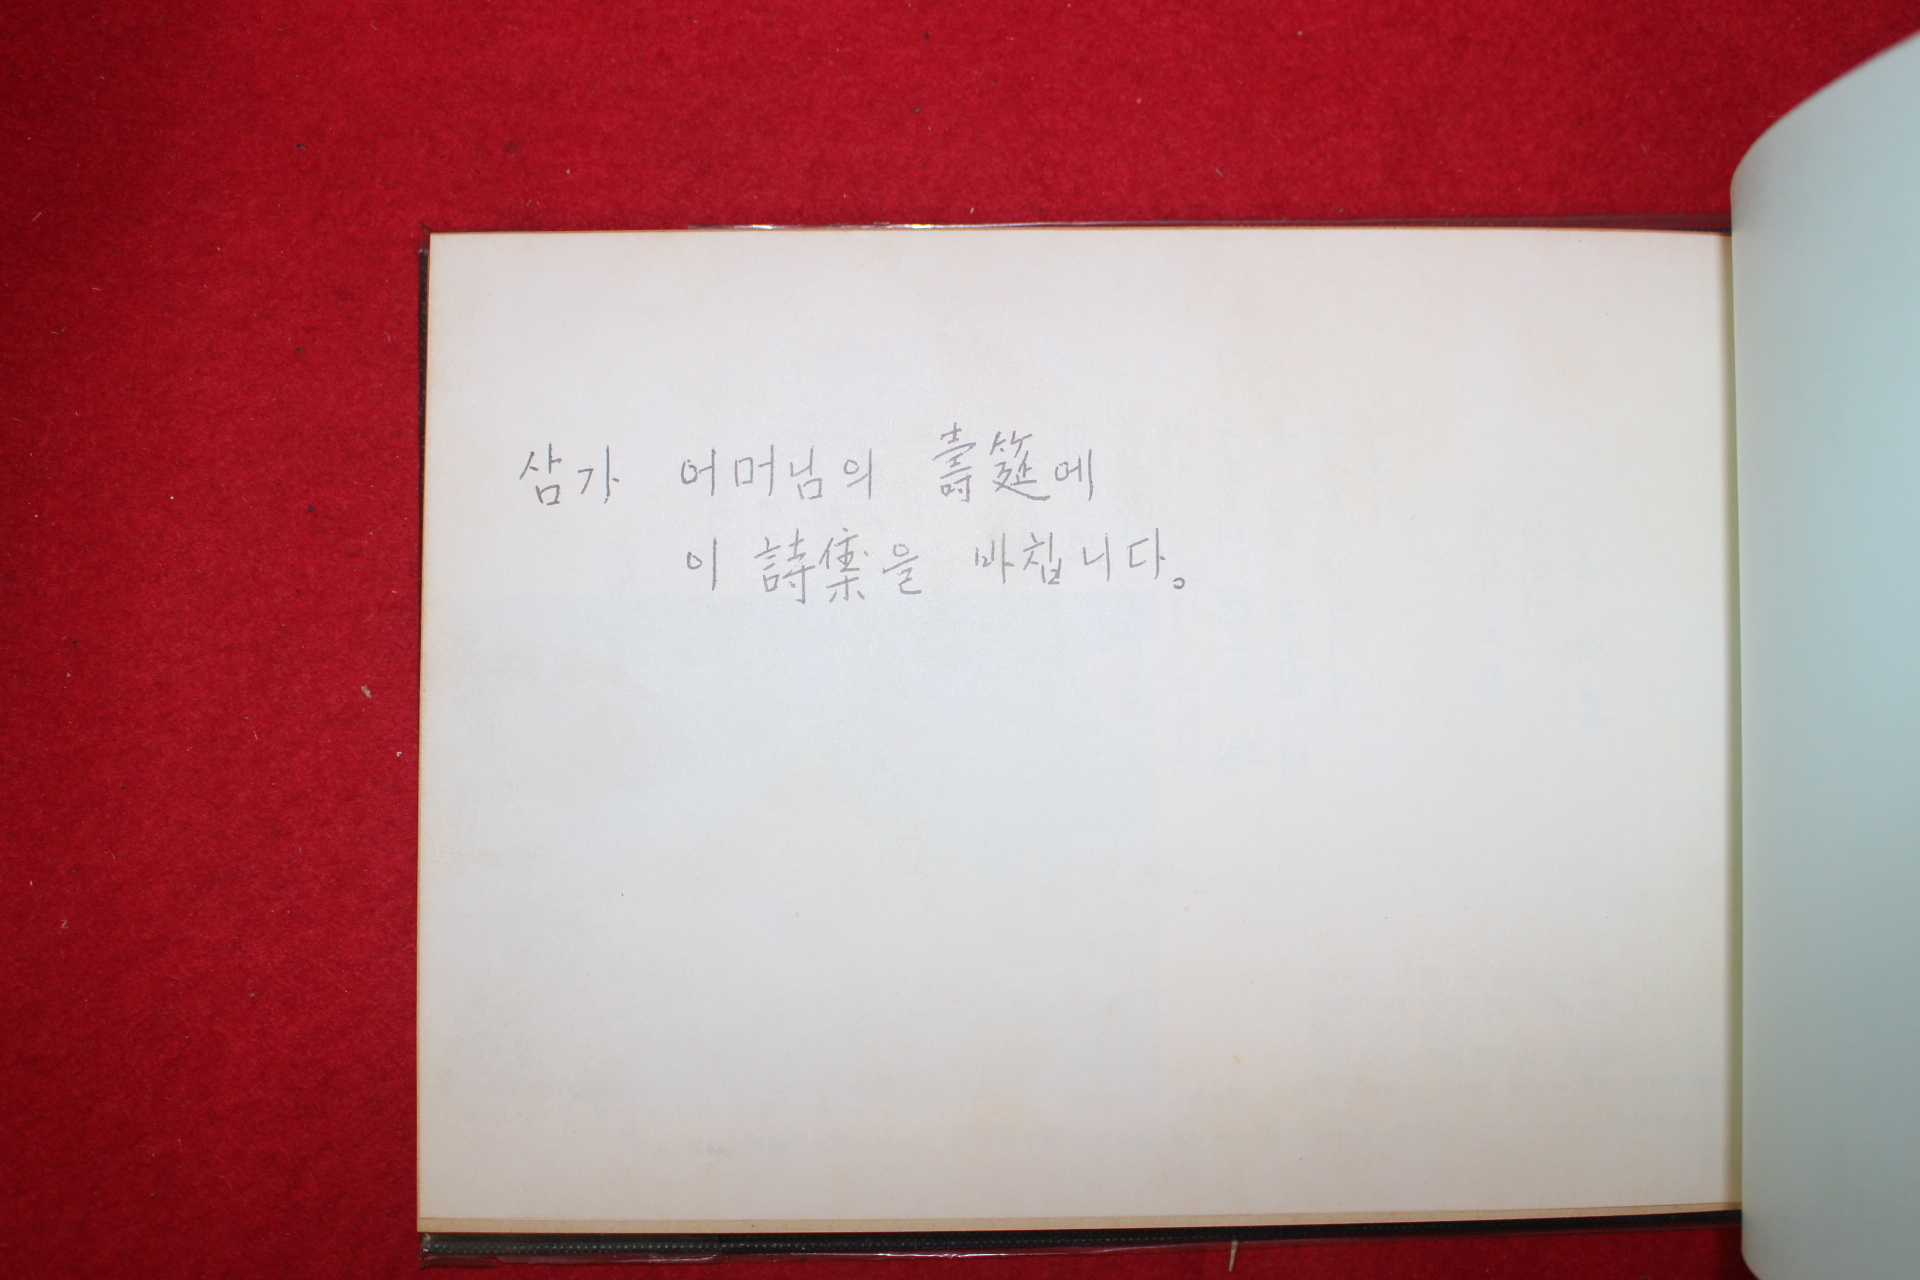 삼가 어머님의 壽筵에
이 詩集을 바칩니다。